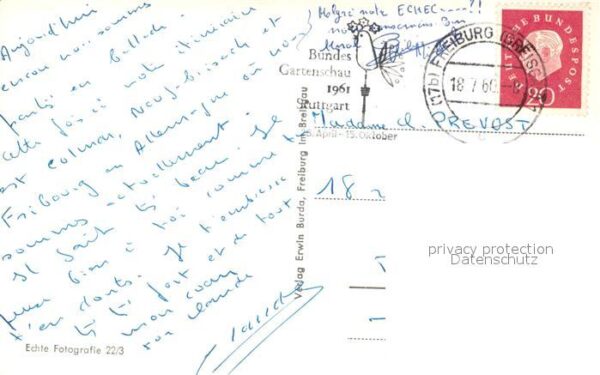 Aujourd'hui
encore nous sommes
partis en ballade
cette fois ci notre itinéraire
est Colmar, Neuf-Brisach et
Fribourg en Allemagne où nous
sommes actuellement.
Il fait très beau. Je
pense bien à toi comme tu
t'en doutes. Je t'embrasse
très très fort et de tout
mon cœur
ton Claude
Claude
Malgré notre ECHEC----?!
nous
moral
Bundes
Gartenschau
1961
Stuttgart
April-15.Oktober
(17b) FREIBURG (BREISG
18.7.60.
DEUTSCHE BUNDESPOST
20
Madame C. PREVOST
18 r
Verlag Erwin Burda, Freiburg im Breisgau
privacy protection
Datenschutz
Echte Fotografie 22/3